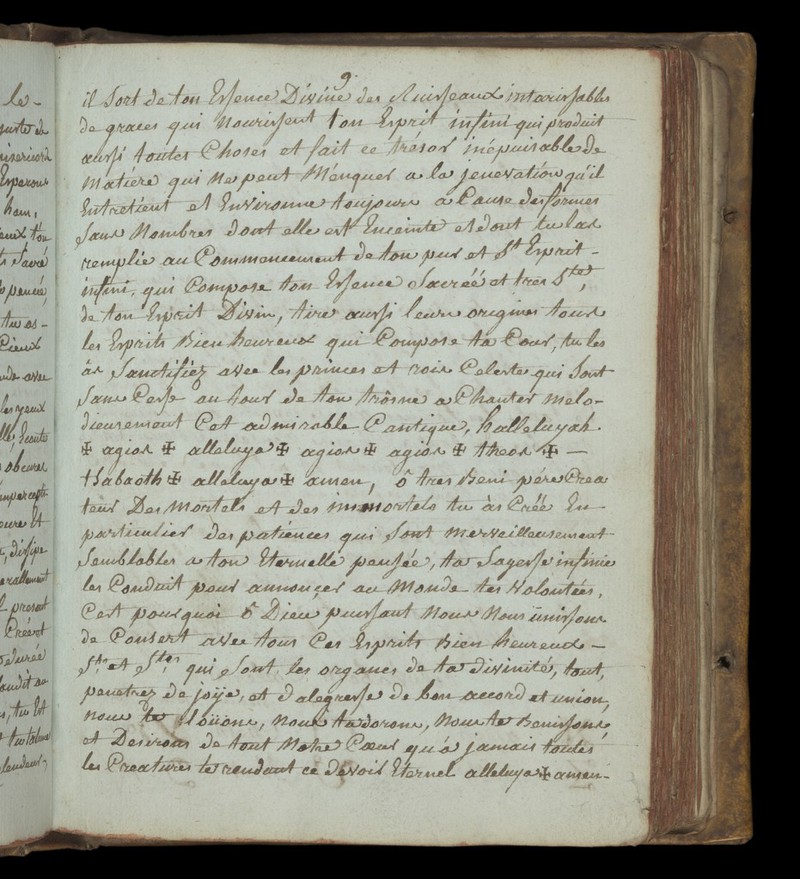 9
il Sort de ton Essence Divine des Ruisseaux intarissables
de graces qui Nourissent ton Esprit infini qui produit
aussi toutes Choses et fait ce trésor inépuisable de
Matière qui ne peut Menquer a la jeneration qu'il
Entretient et Environne toujours a Cause des formes
Sans Nombres dont elle est Enceinte et dont tu las
remplie au Commencement de ton pur et St Esprit -
infini, qui Compose ton Essence Sacréé et tres Ste,
de ton Esprit Divin, tire aussi leurs origines tous
les Esprits Bien heureux qui Compose ta Cour, tu les
às Sanctifiez avec les princes et rois Celeste qui Sont
Sans Cesse au tour de ton trôsne a Chanter melo-
dieusement Cet admirable Cantique, halleluyah
✠ agios ✠ alleluya ✠ agios ✠ agios ✠ theos ✠ —
tsabaoth ✠ alleluya ✠ amen, ô tres Beni pére Crea
teur Des Mortels et des immortels tu às Créé En
particulier des patiences qui Sont merveilleusement
Semblables a ton Eternelle pensée, ta Sagesse infinie
les Conduit pour annonçer au Monde tes Volontées,
C'est pourquoi ô Dieu puissant Nous Nous ünissons
de Consert avec tous Ces Esprits Bien heureux -
Sts et Stes qui Sont les organes de ta divinité, tout,
penetrez de joÿe, et d'alegresse de bon accord et union,
nous te loüons, nous tadorons, Nous te Benissons,
et Desirons de tout Notre Cœur qu'à jamais toutes
les Creatures te rendant ce devoir Eternel alleluya ✠ amen -
le -
ham,
tu os -
Cieux